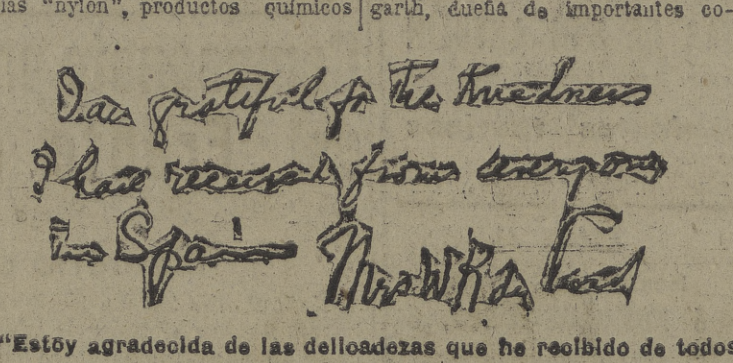 las "nylon", productos químicos
garth, dueña de importantes co-
I am grateful for the kindness
I have received from everyone
in Spain Mrs W K du Pont
"Estoy agradecida de las delicadezas que he recibido de todos